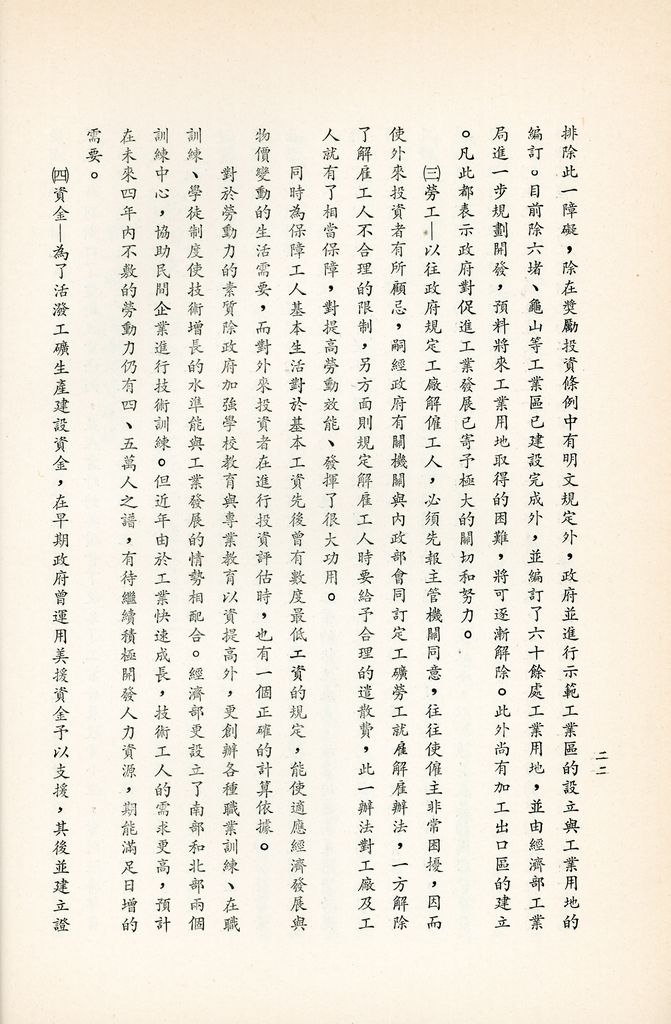 排除此一障礙，除在獎勵投資條例中有明文規定外，政府並進行示範工業區的設立與工業用地的
編訂。目前除六堵、龜山等工業區已建設完成外，並編訂了六十餘處工業用地，並由經濟部工業
局進一步規劃開發，預料將來工業用地取得的困難，將可逐漸解除。此外尚有加工出口區的建立
。凡此都表示政府對促進工業發展已寄予極大的關切和努力。
㈢勞工—以往政府規定工廠解僱工人，必須先報主管機關同意，往往使僱主非常困擾，因而
使外來投資者有所顧忌，嗣經政府有關機關與內政部會同訂定工礦勞工就雇解雇辦法，一方解除
了解雇工人不合理的限制，另方面則規定解雇工人時要給予合理的遣散費，此一辦法對工廠及工
人就有了相當保障，對提高勞動效能、發揮了很大功用。
同時為保障工人基本生活對於基本工資先後曾有數度最低工資的規定，能使適應經濟發展與
物價變動的生活需要，而對外來投資者在進行投資評估時，也有一個正確的計算依據。
對於勞動力的素質除政府加強學校教育與專業教育以資提高外，更創辦各種職業訓練、在職
訓練、學徒制度使技術增長的水準能與工業發展的情勢相配合。經濟部更設立了南部和北部兩個
訓練中心，協助民間企業進行技術訓練。但近年由於工業快速成長，技術工人的需求更高，預計
在未來四年內不敷的勞動力仍有四、五萬人之譜，有待繼續積極開發人力資源，期能滿足日增的
需要。
㈣資金—為了活潑工礦生產建設資金，在早期政府曾運用美援資金予以支援，其後並建立證
二二